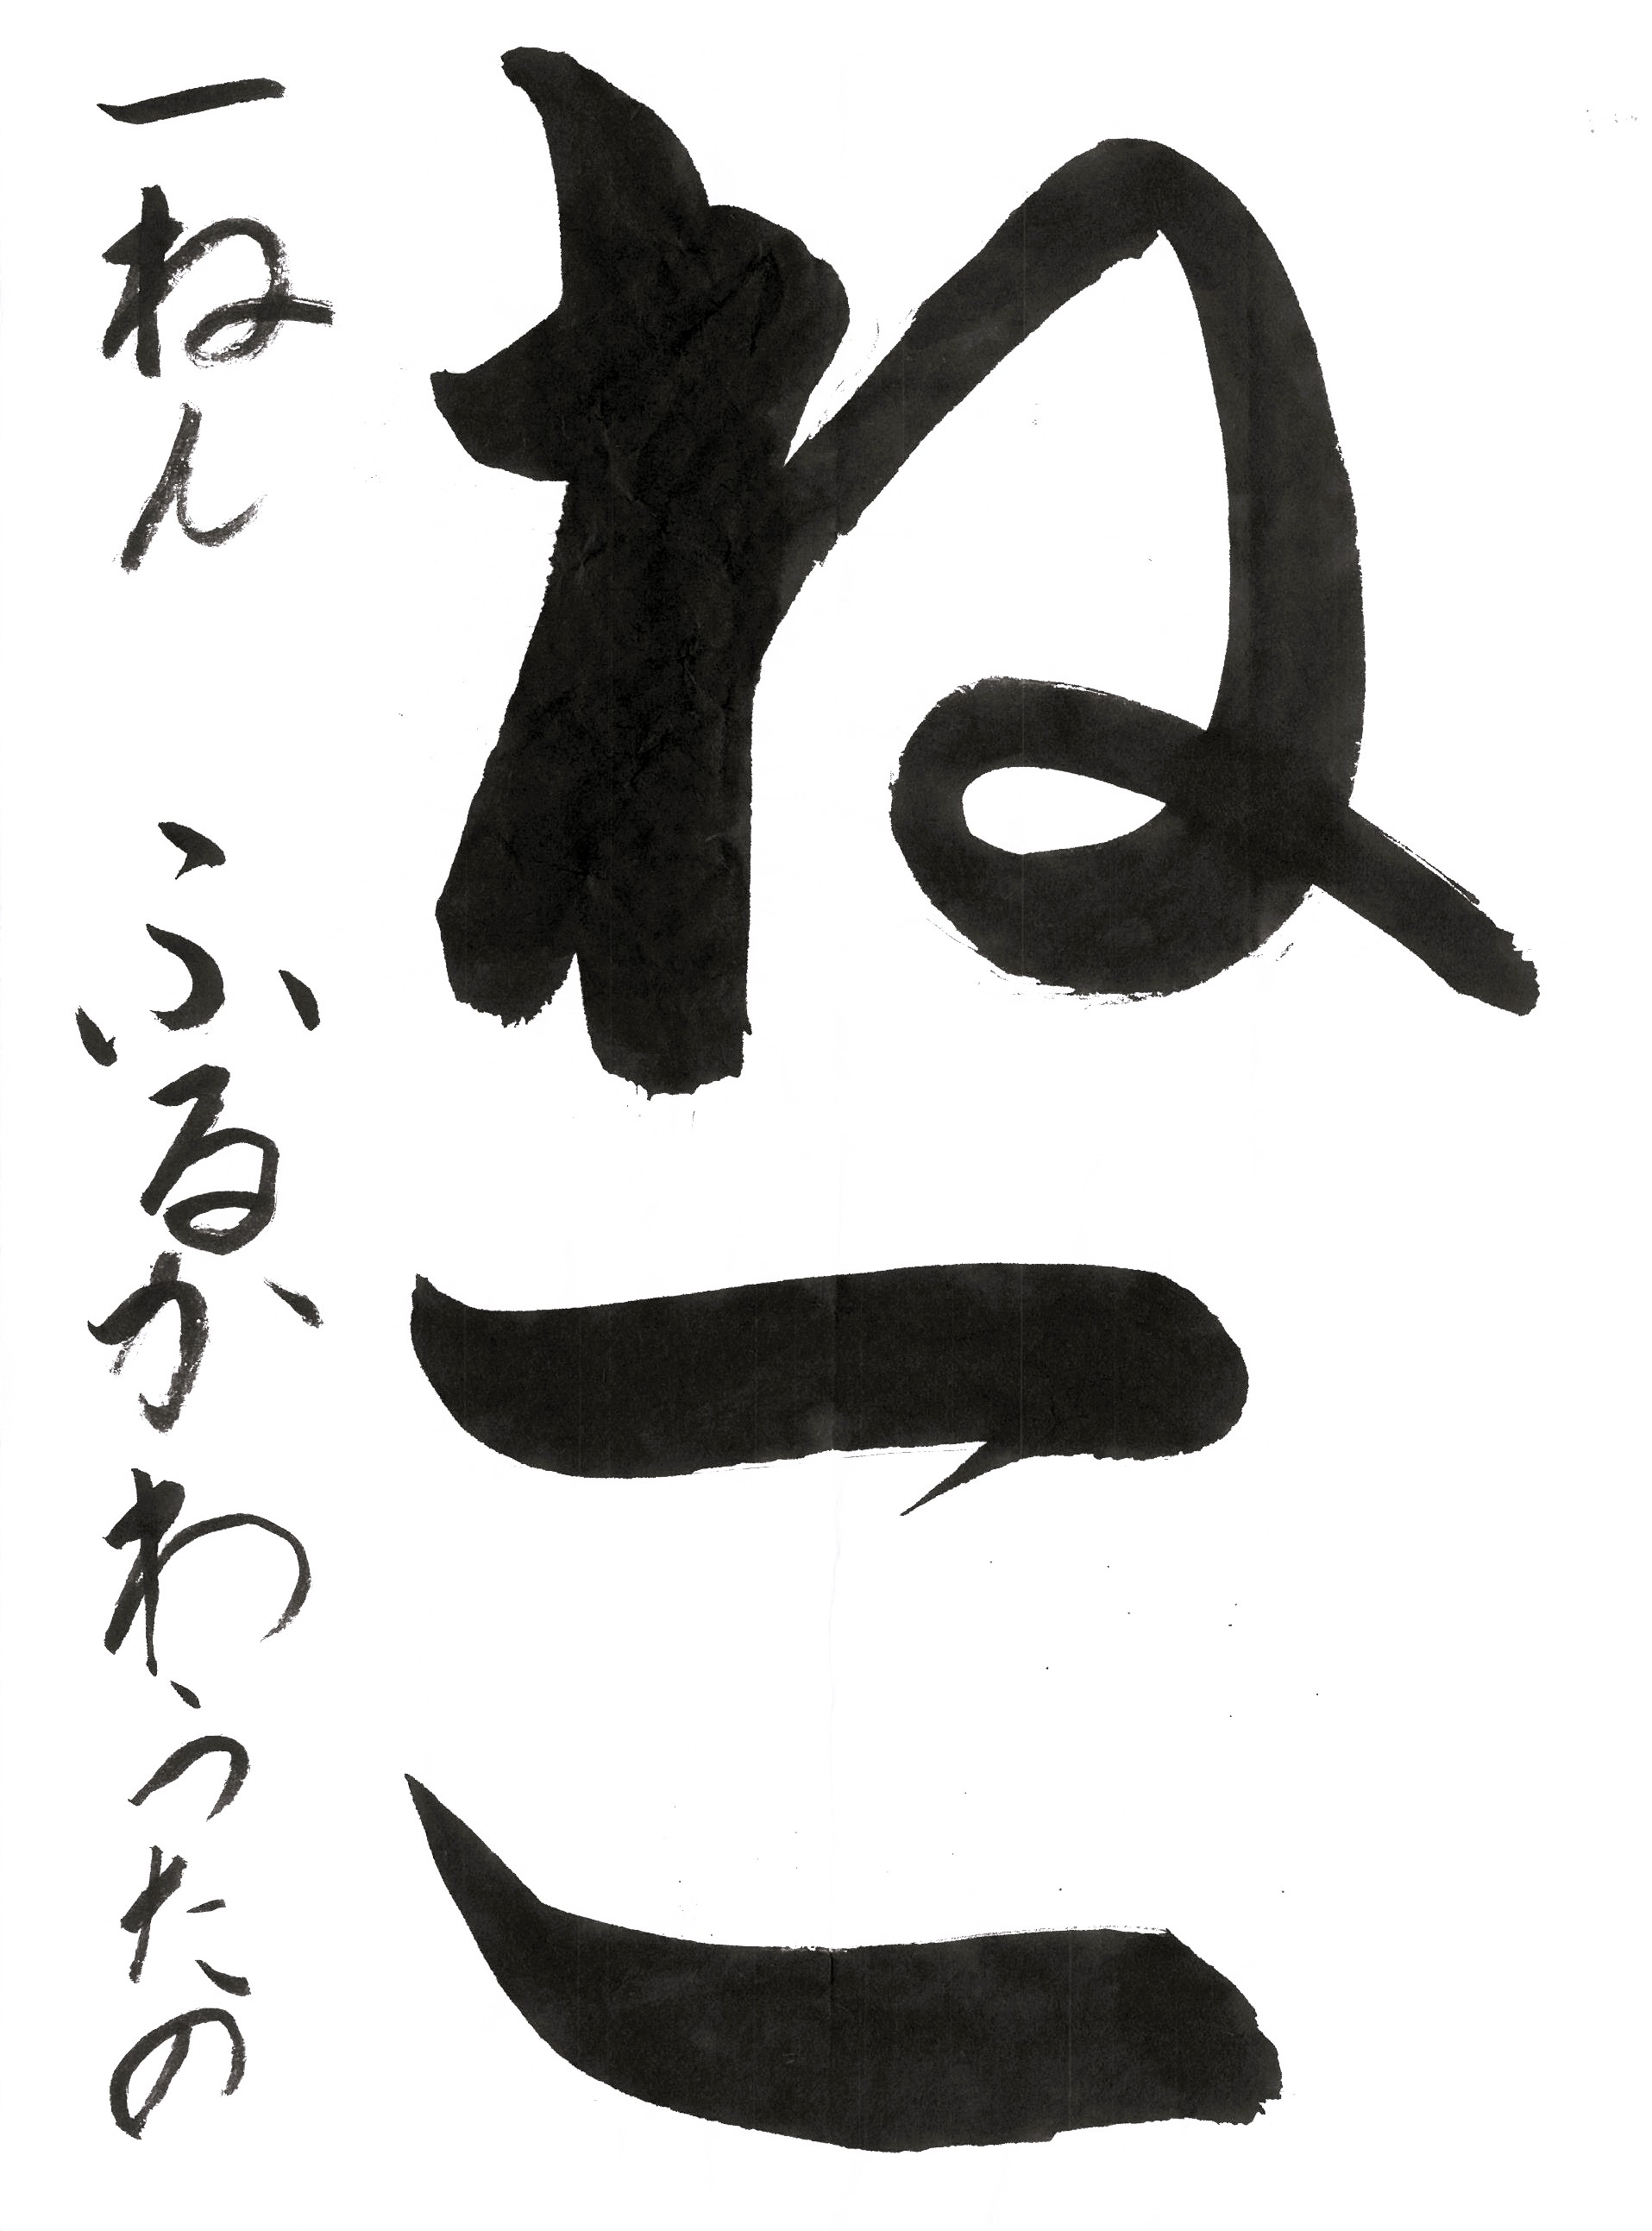 ねこ
一ねん ふるかわうたの